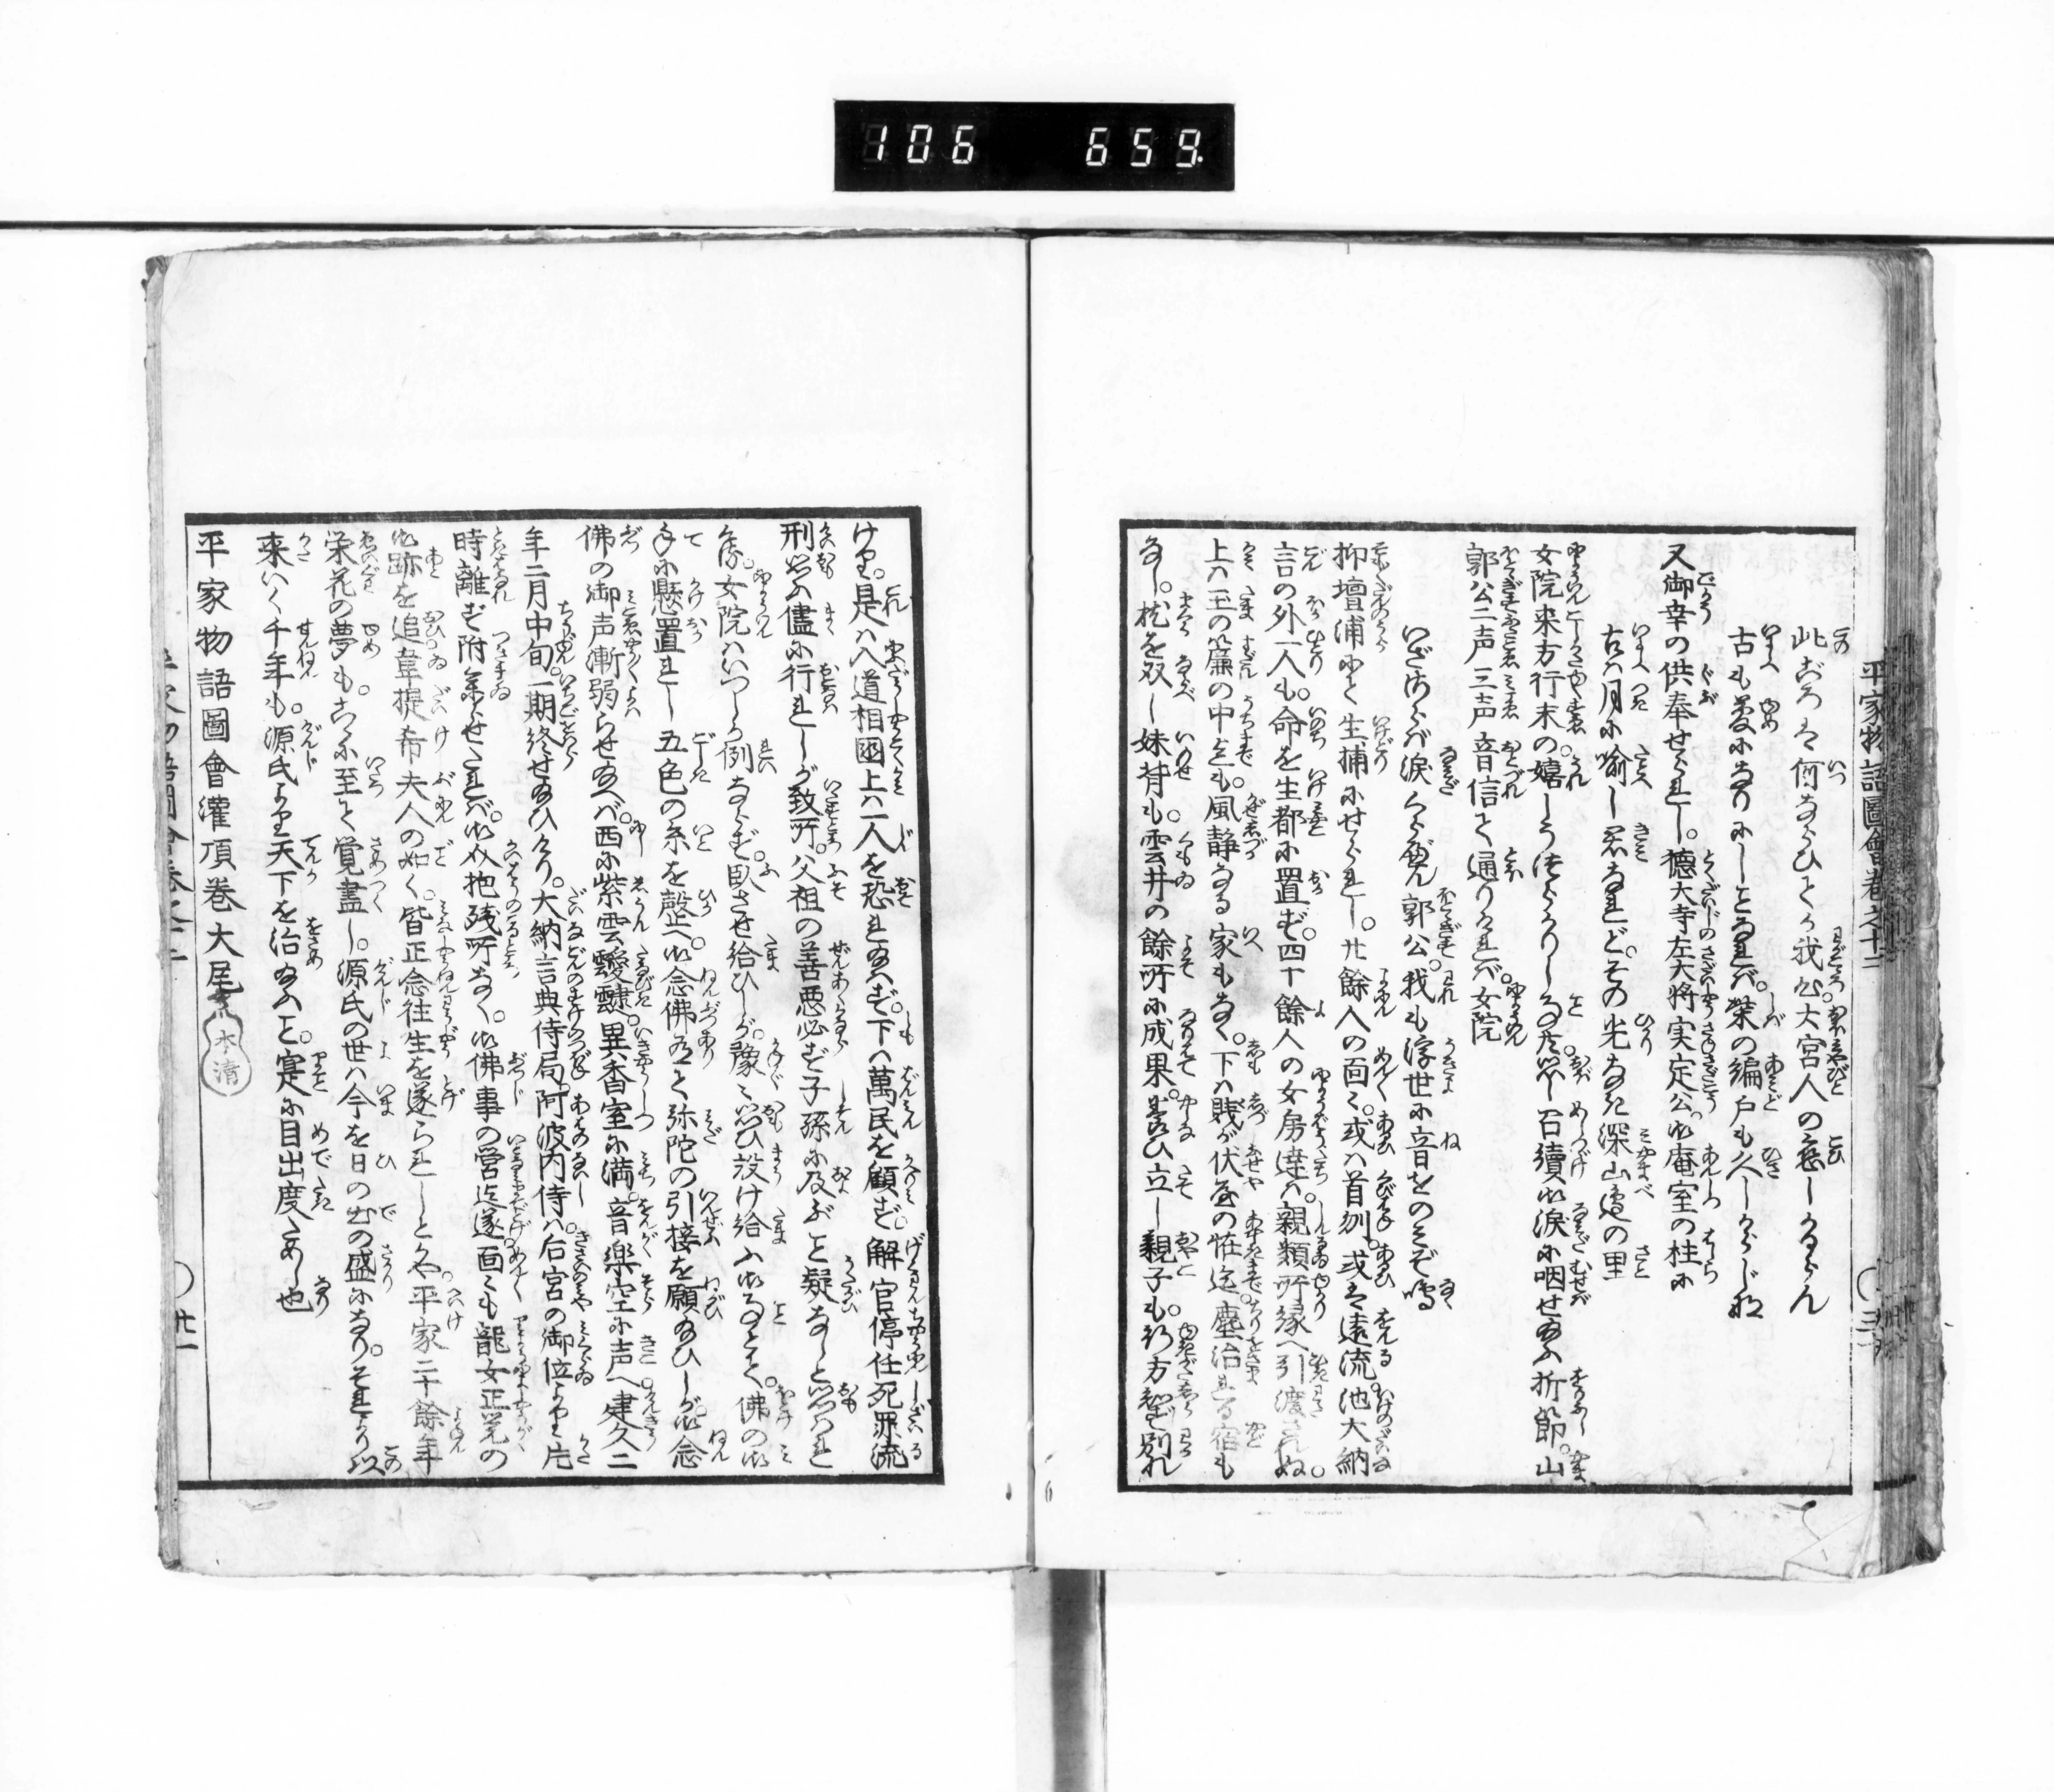 106 659
平家物語圖會巻之十二
此ごろは何ならひてか我心大宮人の恋しかるらん
古も夢になりにしことなれば。柴の編戸も久しからじな
又御幸の供奉せられし。徳大寺左大将実定公。御庵室の柱に
古は月に喩し君なれど。その光なき深山邊の里
女院来方行末の嬉しうつらかりし事共。思召續御涙に咽せ給ふ折節。山
郭公二声三声音信て通りければ。女院
いざさらば涙くらべん郭公。我も浮世に音をのみぞ鳴
抑壇浦にて生捕にせられし。廿餘人の面々。或ハ首刎。或は遠流。池大納
言の外一人も。命を生都に置ず。四十餘人の女房達ハ。親類所縁へ引渡されぬ。
上ハ玉の簾の中迄も。風静なる家もなく。下ハ賎が伏屋の怪迄。塵治れる宿も
なし。枕を双し妹背も。雲井の餘所に成果。養ひ立し親子も。行方知ず別れ
けり。是ハ入道相國上ハ一人を恐れ給はず。下ハ萬民を顧ず。解官停任死罪流
刑思ふ儘に行れしが致所。父祖の善悪必ず子孫に及ぶこと疑なしと思はれ
ける。女院ハいつしか例ならず。臥させ給ひしが。豫々思ひ設け給ふ御事とて。佛の御
手に懸置れし五色の糸を引へ。御念佛有て弥陀の引接を願給ひしが。御念
佛の御声漸弱らせ給へバ。西に紫雲靉靆。異香室に満。音楽空に声へ。建久二
年二月中旬。一期終せ給ひけり。大納言典侍局。阿波内侍ハ。后宮の御位より片
時離ず附参せたれバ。御女抱残所なく。御佛事の営迄遂。面々も龍女正覚の
御跡を追韋提希夫人の如く。皆正念往生を遂られしとかや。平家二十餘年
栄花の夢も。こゝに至て覚盡し。源氏の世ハ今を日の出の盛になり。それより以
来いく千年も。源氏より天下を治給ふこと。寔に目出度ためし也
平家物語圖會灌頂巻大尾
李清
廿一